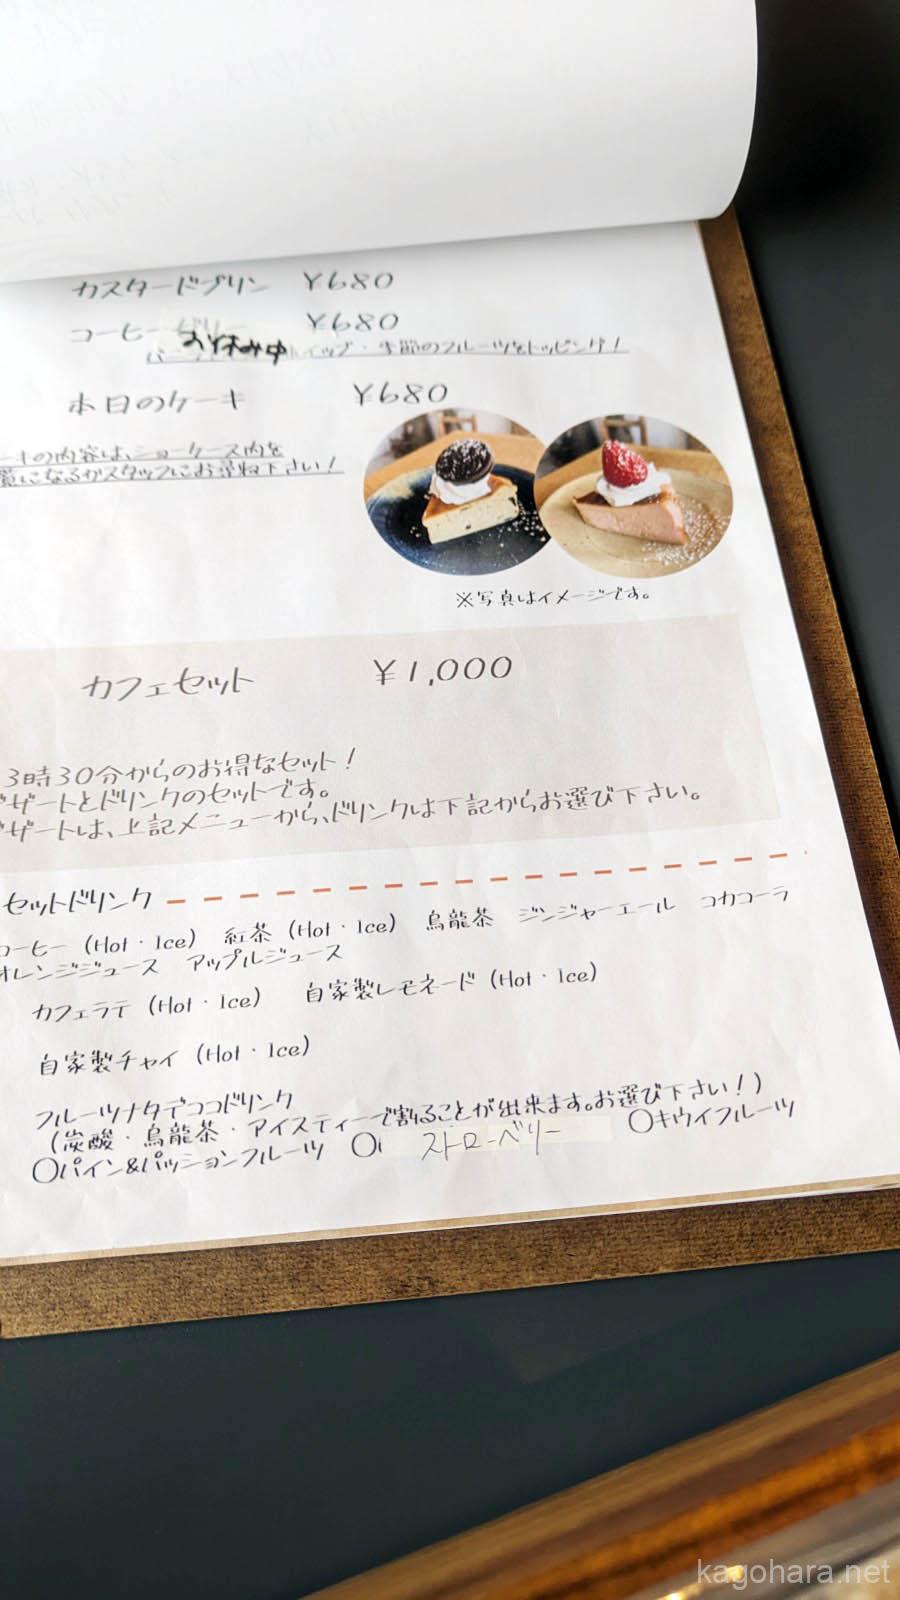 カスタードプリン ¥680
コーヒー ゼリー ¥680
お休み中
イップ・季節のフルーツをトッピング！
本日のケーキ ¥680
ーキの内容は、ショーケース内を
覧になるかスタッフにお尋ね下さい！
※写真はイメージです。
カフェセット ¥1,000
3時30分からのお得なセット！
デザートとドリンクのセットです。
デザートは、上記メニューから、ドリンクは下記からお選び下さい。
セットドリンク
コーヒー (Hot・Ice) 紅茶 (Hot・Ice) 烏龍茶 ジンジャーエール コカコーラ
オレンジジュース アップルジュース
カフェラテ (Hot・Ice) 自家製レモネード (Hot・Ice)
自家製チャイ (Hot・Ice)
フルーツナタデココドリンク
(炭酸・烏龍茶・アイスティーで割ることが出来ます。お選び下さい！)
○パイン&パッションフルーツ ○ ストローベリー ○キウイフルーツ
kagohara.net